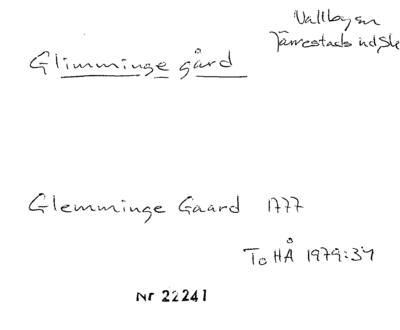 Vallby sn
Järrestads hd Sk
Glimminge gård
Glemminge Gaard 1777
ToHÅ 1979:34
Nr 22241